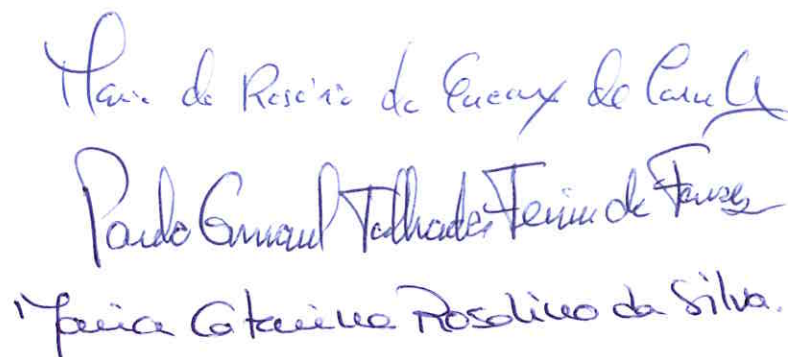 Maria do Rosário da de
Paulo Emanuel Talhadas Ferreira da Fonseca
Maria Catarina Rosalino da Silva.